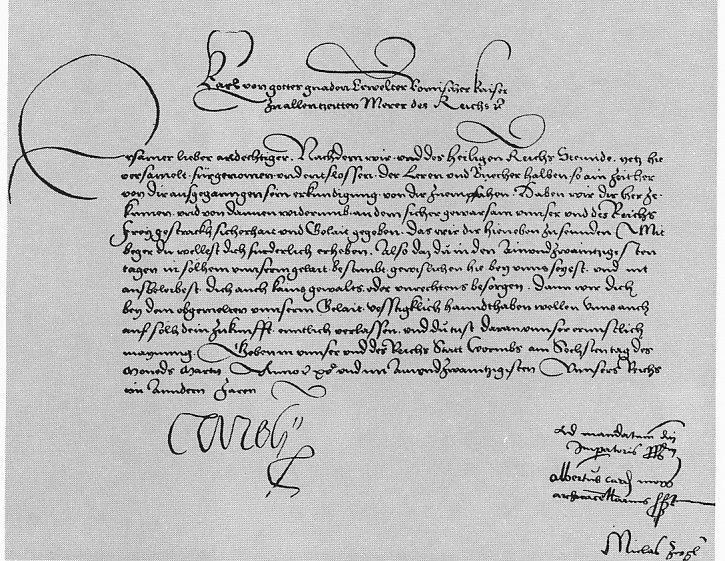 Karl von gottes gnaden Erwelter Romischer Kaiser
zu allen tzeitten Merer des Reichs ꝛc
Ersamer lieber andechtiger. Nachdem wir und des heiligen Reichs Stennde. yetz hie
versamelt. furgenomen und entslossen. der Leren und Buecher halben. so ain zeither
von dir ausgegangen sein erkundigung von dir zuempfahen. Haben wir dir her ze-
kumen. und von dannen widerumb. an dem sicher gewarsam unser und des Reichs
Frey gestrackh Sicherhait und Glait gegeben. Das wir dir hieneben zusennden. Mit
beger du wellest dich furderlich erheben. Also daz du in den Ainundzwaintzigisten
tagen in solhem unnserm gelait bestimbt. gewislichen hie bey unns seyest. und nit
aussbleibest. dich auch kains gewalts oder unrechtens besorgen. Dann wir dich
bey dem obgemelten unnserm Glait. vesstigklich hanndthaben wellen. Unns auch
auf solh dein zukunfft enntlich verlassen. und du tust daran unnser ernnstlich
maynung. Geben in unser und des Reichs Statt Wormbs am Sechsten tag des
Moneds Marty Anno ꝛc xvᶜ und im Ainundzwaintzigisten Unnsers Reichs
im Anndern Jaren
Carolus
Ad mandatum dni
Imperatoris pp
Albertus card mogo
archicancellarius sst
Niclas Zigl